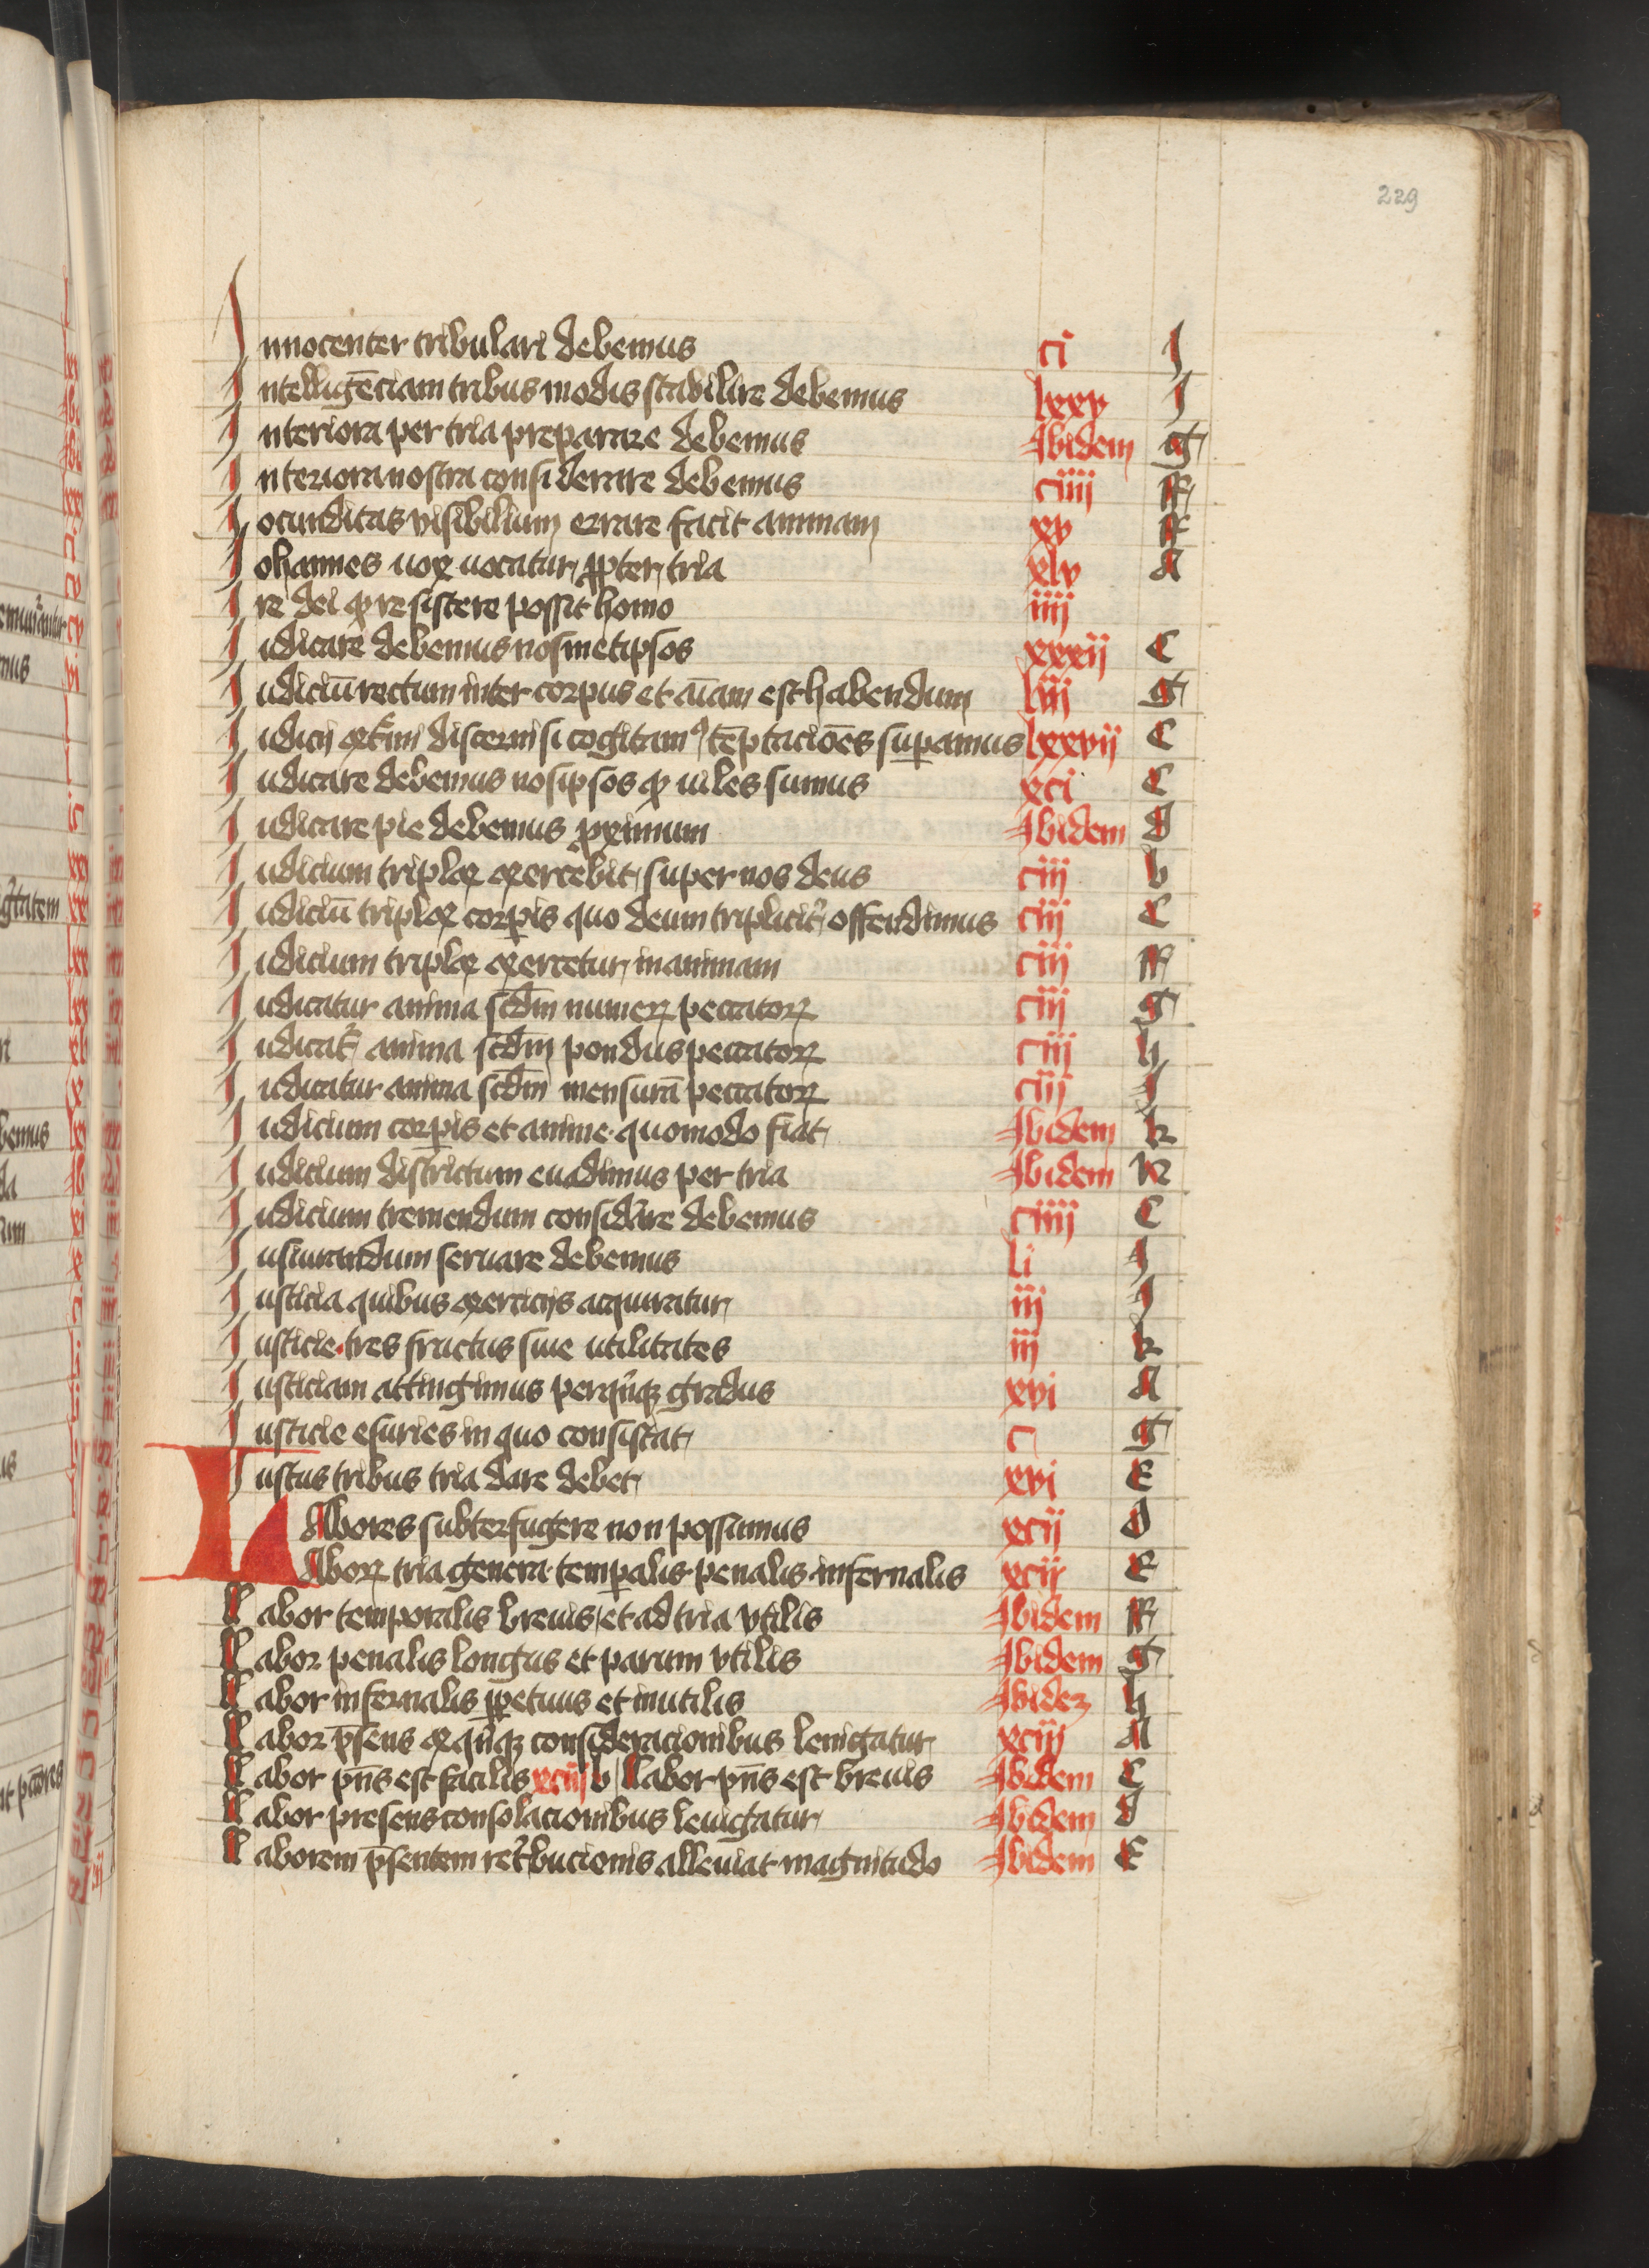 229
Innocenter tribulari debemus ci J
Intelligēciam tribus modis stabilire debemus lxxv J
Interiora per tria preparare debemus Ibidem g
Interiora nostra considerare debemus ciiij F
Iocunditas visibilium errare facit animam xv F
Iohannes uox uocatur ꝓpter tria xlv A
Ire dei ꝙ resistere possit homo iiij
Iudicare debemus nosmetipsos xxxij C
Iudiciū rectum inter corpus et aīam est habendum liij g
Iudicij discerni si cogitamꝰ tēptaciōes suꝑamus lxxvij C
Iudicare debemus nosipsos ꝙ uiles sumus xci C
Iudicare pie debemus ꝓximum Ibidem d
Iudicium triplex exercebit super nos deus ciij b
Iudiciū triplex corꝑis quo deum triplicit̾ offendimus ciij C
Iudicium triplex exercetur in animam ciij F
Iudicatur anima scd̄m numeꝝ peccatoꝝ ciij g
Iudicat᷑ anima scd̄m pondus peccatoꝝ ciij h
Iudicatur anima scd̄m mensurā peccatoꝝ ciij J
Iudicium corꝑis et anime quomodo fiat Ibidem k
Iudicium districtum euadimus per tria Ibidem K
Iudicium tremendum consid̾are debemus ciiij C
Iusiurandum seruare debemus li J
Iusticia quibus exercicijs acquiratur iij J
Iusticie tres fructus siue utilitates iij k
Iusticiam attingimus per qͥnqꝫ gradus xvi A
Iusticie esuries in quo consistat c g
Iustus tribus tria dare debet xvi E
LAbores subterfugere non possumus xcij d
Laboꝝ tria genera temꝑalis penalis infernalis xcij E
Labor temporalis breuis et ad tria vtilis Ibidem F
Labor penalis longus et parum vtilis Ibidem g
Labor infernalis ꝑpetuus et inutilis Ibidez h
Labor p̄sens ex qͥnqꝫ consideracionibus leuigatur xciij A
Labor pn̄s est facilis xciij b Labor pn̄s est breuis Ibidem C
Labor presens consolacionibus leuigatur Ibidem d
Laborem p̄sentem ret̾bucionis alleuiat magnitudo Ibidem E